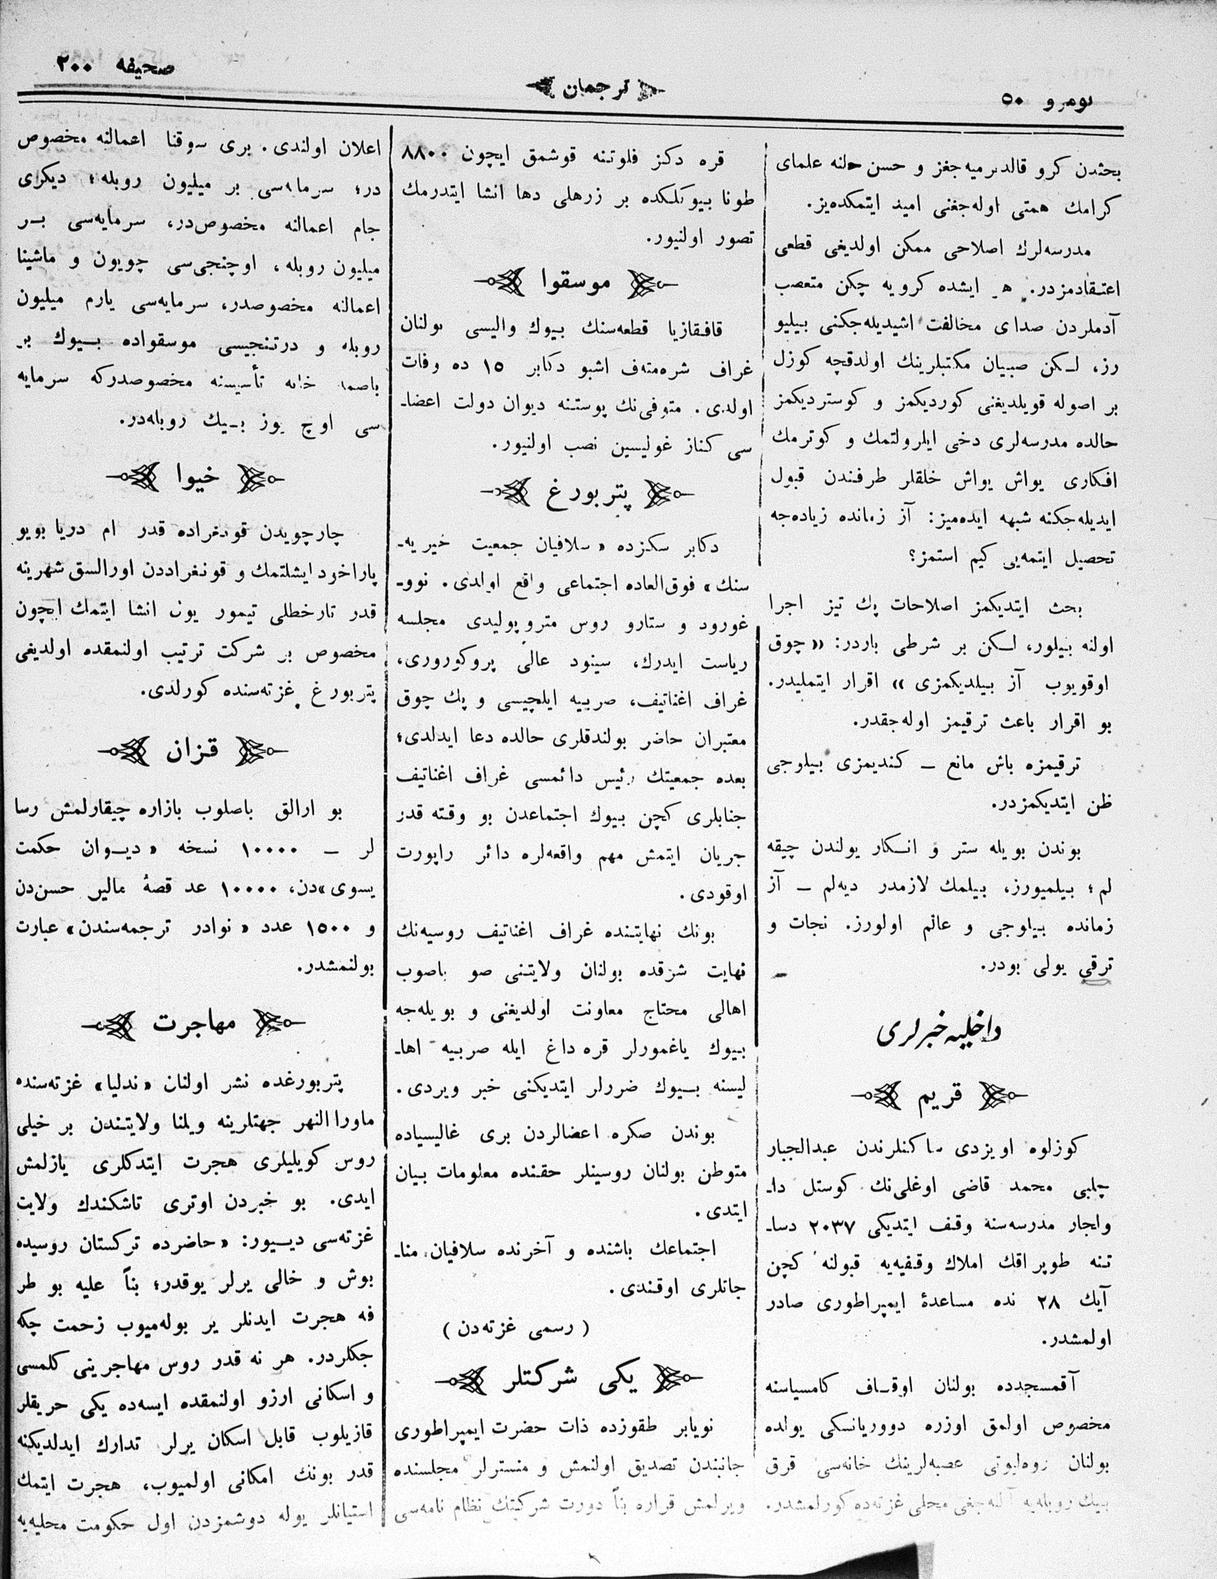 نومرو ٥٠
ترجمان
صحيفه ٢٠٠
بحثدن كرو قالديرميه‌جغز و حسن حلنه علمای
كرامك همتی اوله‌جغنی اميد ايتمكده‌يز.
مدرسه‌لرك اصلاحی ممكن اولديغی قطعی
اعتقادمزدر. هر ايشده كرويه چكن متعصب
آدملردن صدای مخالفت اشيديله‌جكنی بيليو
رز، لكن صبيان مكتبلرينك اولدقچه كوزل
بر اصوله قويلديغنی كورديكمز و كوستر‌ديكمز
حالده مدرسه‌لری دخی ايلرولتمك و كوترمك
افكاری يواش يواش خلقلر طرفندن قبول
ايديله‌جكنه شبهه ايده‌ميز: آز زمانده زياده‌جه
تحصيل ايتمه‌يی كيم استمز؟
بحث ايتديكمز اصلاحات پك تيز اجرا
اولنه بيلور، لكن بر شرطی باردر: «چوق
اوقويوب آز بيلديكمزی» اقرار ايتمليدر.
بو اقرار باعث ترقيمز اوله‌جقدر.
ترقيمزه باش مانع — كنديمزی بيلوجی
ظن ايتديكمزدر.
بوندن بويله ستر و انكار يولندن چيقه
لم؛ بيلميورز، بيلمك لازمدر ديه‌لم — آز
زمانده بيلوجی و عالم اولورز. نجات و
ترقی يولی بودر.
داخليه خبرلری
قريم
كوزلوه اويزدی ساكنلرندن عبدالجبار
چلبی محمد قاضی اوغلی‌نك كوستل دا‍
واجار مدرسه‌سنه وقف ايتديكی ٢٠٣٧ دسا‍
تنه طوپراقك املاك وقفيه‌يه قبولنه كچن
آيك ٢٨ نده مساعدۀ ايمپراطوری صادر
اولمشدر.
آقمسجدده بولنان اوقاف كامسياسنه
مخصوص اولمق اوزره دووريانسكی يولده
بولنان عصبه‌لرينك خانه‌سی قرق
بيك روبله‌يه آلنه‌جغی محلی غزته‌ده كورلمشدر.
قره دكز فلوتنه قوشمق ايچون ٨٨٠٠
طونا بيوكلكده بر زرهلی دها انشا ايتدرمك
تصور اولنيور.
موسقوا
قافقازيا قطعه‌سنك بيوك واليسی بولنان
غراف شره‌متف اشبو دكابر ١٥ ده وفات
اولدی. متوفی‌نك پوستنه ديوان دولت اعضا‍
سی كناز غوليسين نصب اولنيور.
پتربورغ
دكابر سكزده «سلافيان جمعيت خيريه‍
سنك» فوق‌العاده اجتماعی واقع اولدی. نوو‍
غورود و ستارو روس متروپوليدی مجلسه
رياست ايدرك، سينود عالی پروكوروری،
غراف اغناتيف، صربيه ايلچيسی و پك چوق
معتبران حاضر بولندقلری حالده دعا ايدلدی؛
بعده جمعيتك رئيس دائمسی غراف اغناتيف
جنابلری كچن بيوك اجتماعدن بو وقته قدر
جريان ايتمش مهم واقعه‌لره دائر راپورت
اوقودی.
بونك نهايتنده غراف اغناتيف روسيه‌نك
نهايت شرقده بولنان ولايتنی صو باصوب
اهالی محتاج معاونت اولديغنی و بويله‌جه
بيوك ياغمورلر قره داغ ايله صربيه اها‍
ليسنه بيوك ضررلر ايتديكنی خبر ويردی.
بوندن صكره اعضالردن بری غاليسياده
متوطن بولنان روسينلر حقنده معلومات بيان
ايتدی.
اجتماعك باشنده و آخرنده سلافيان منا‍
جاتلری اوقندی.
(رسمی غزته‌دن)
يكی شركتلر
نويابر طقوزده ذات حضرت ايمپراطوری
جانبندن تصديق اولنمش و منسترلر مجلسنده
ويرلمش قراره بناً دورت شركتك نظام نامه‌سی
اعلان اولندی. بری سوقنا اعمالنه مخصوص
در؛ سرمايه‌سی بر ميليون روبله؛ ديكری
جام اعمالنه مخصوص‌در، سرمايه‌سی بر
ميليون روبله، اوچنجی‌سی چويون و ماشينا
اعمالنه مخصوصدر، سرمايه‌سی يارم ميليون
روبله و درتنجيسی موسقواده بيوك بر
باصمه خانه تأسيسنه مخصوصدركه سرمايه
سی اوچ يوز بيك روبله‌در.
خيوا
چارچويدن قونغراده قدر ام دريا بويو
پاراخود ايشلتمك و قونغراددن اورالسق شهرينه
قدر تارخطلی تيمور يول انشا ايتمك ايچون
مخصوص بر شركت ترتيب اولنمقده اولديغی
پتربورغ غزته‌سنده كورلدی.
قزان
بو ارالق باصلوب بازاره چيقارلمش رسا
لر — ١٠٠٠٠ نسخه «ديوان حكمت
يسوی»دن، ١٠٠٠٠ عدد قصۀ مالير حسن‌دن
و ١٥٠٠ عدد «نوادر ترجمه‌سندن» عبارت
بولنمشدر.
مهاجرت
پتربورغده نشر اولنان «ندليا» غزته‌سنده
ماورا النهر جهتلرينه ويلنا ولايتندن بر خيلی
روس كويليلری هجرت ايتدكلری يازلمش
ايدی. بو خبردن اوتری تاشكندك ولايت
غزته‌سی ديیور: «حاضرده تركستان روسيده
بوش و خالی يرلر يوقدر؛ بناً عليه بو طر
فه هجرت ايدنلر ير بوله‌ميوب زحمت چكه
جكلردر. هر نه قدر روس مهاجرينی كلمسی
و اسكانی ارزو اولنمقده ايسه‌ده يكی حريقلر
قازيلوب قابل اسكان يرلر تدارك ايدلديكنه
قدر بونك امكانی اولميوب، هجرت ايتمك
استيانلر يوله دوشمزدن اول حكومت محليه‌يه